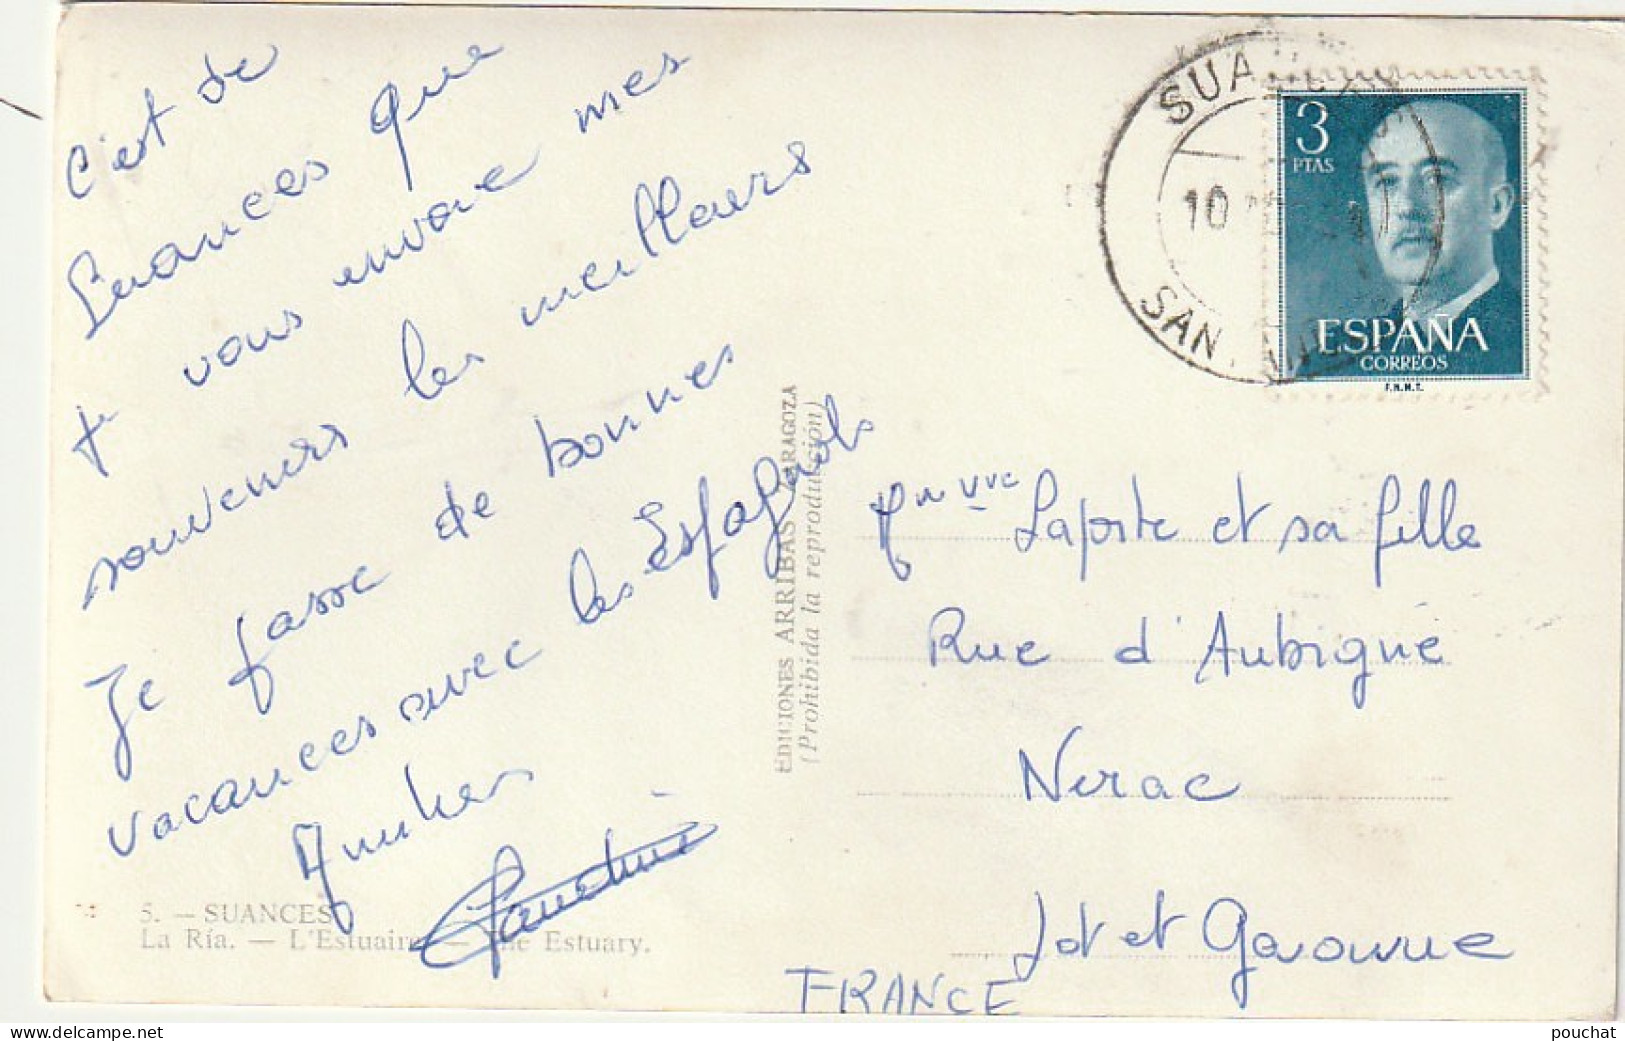 c'est de
Suances que
je vous envoie mes
souvenirs les meilleurs
Je passe de bonnes
vacances avec les Espagnols
5. — SUANCES
La Ría. — L'Estuaire — The Estuary.
EDICIONES ARRIBAS ZARAGOZA
(Prohibida la reproducción)
SUANCES
10
SANTANDER
3
PTAS
ESPAÑA
CORREOS
F.N.M.T.
Vve Laporte et sa fille
Rue d'Aubigné
Nérac
Lot et Garonne
FRANCE
pouchat